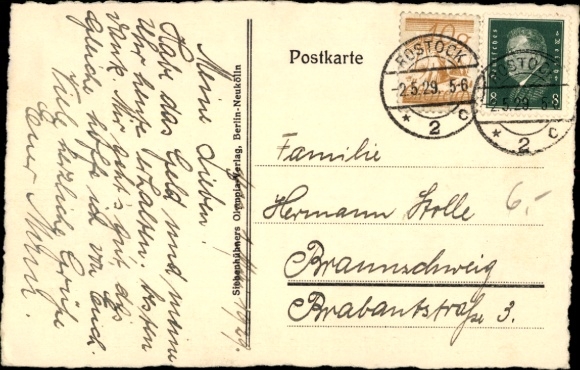 Postkarte
ROSTOCK
-2.5.29. 5-6
* 2 c
ROSTOCK
-2.5.29. 5-6
* 2 c
8 8
Familie
Hermann Stolle
Braunschweig
Brabantstraße 3.
6.-
Siebenhühners Olympia-Verlag, Berlin-Neukölln
1929.
Meine Lieben.
Habe das Geld und meine
Uhr heute erhalten. besten
Dank. Mir geht's gut, das
Gleiche hoffe ich von Euch.
Viele herzliche Grüße
Euer